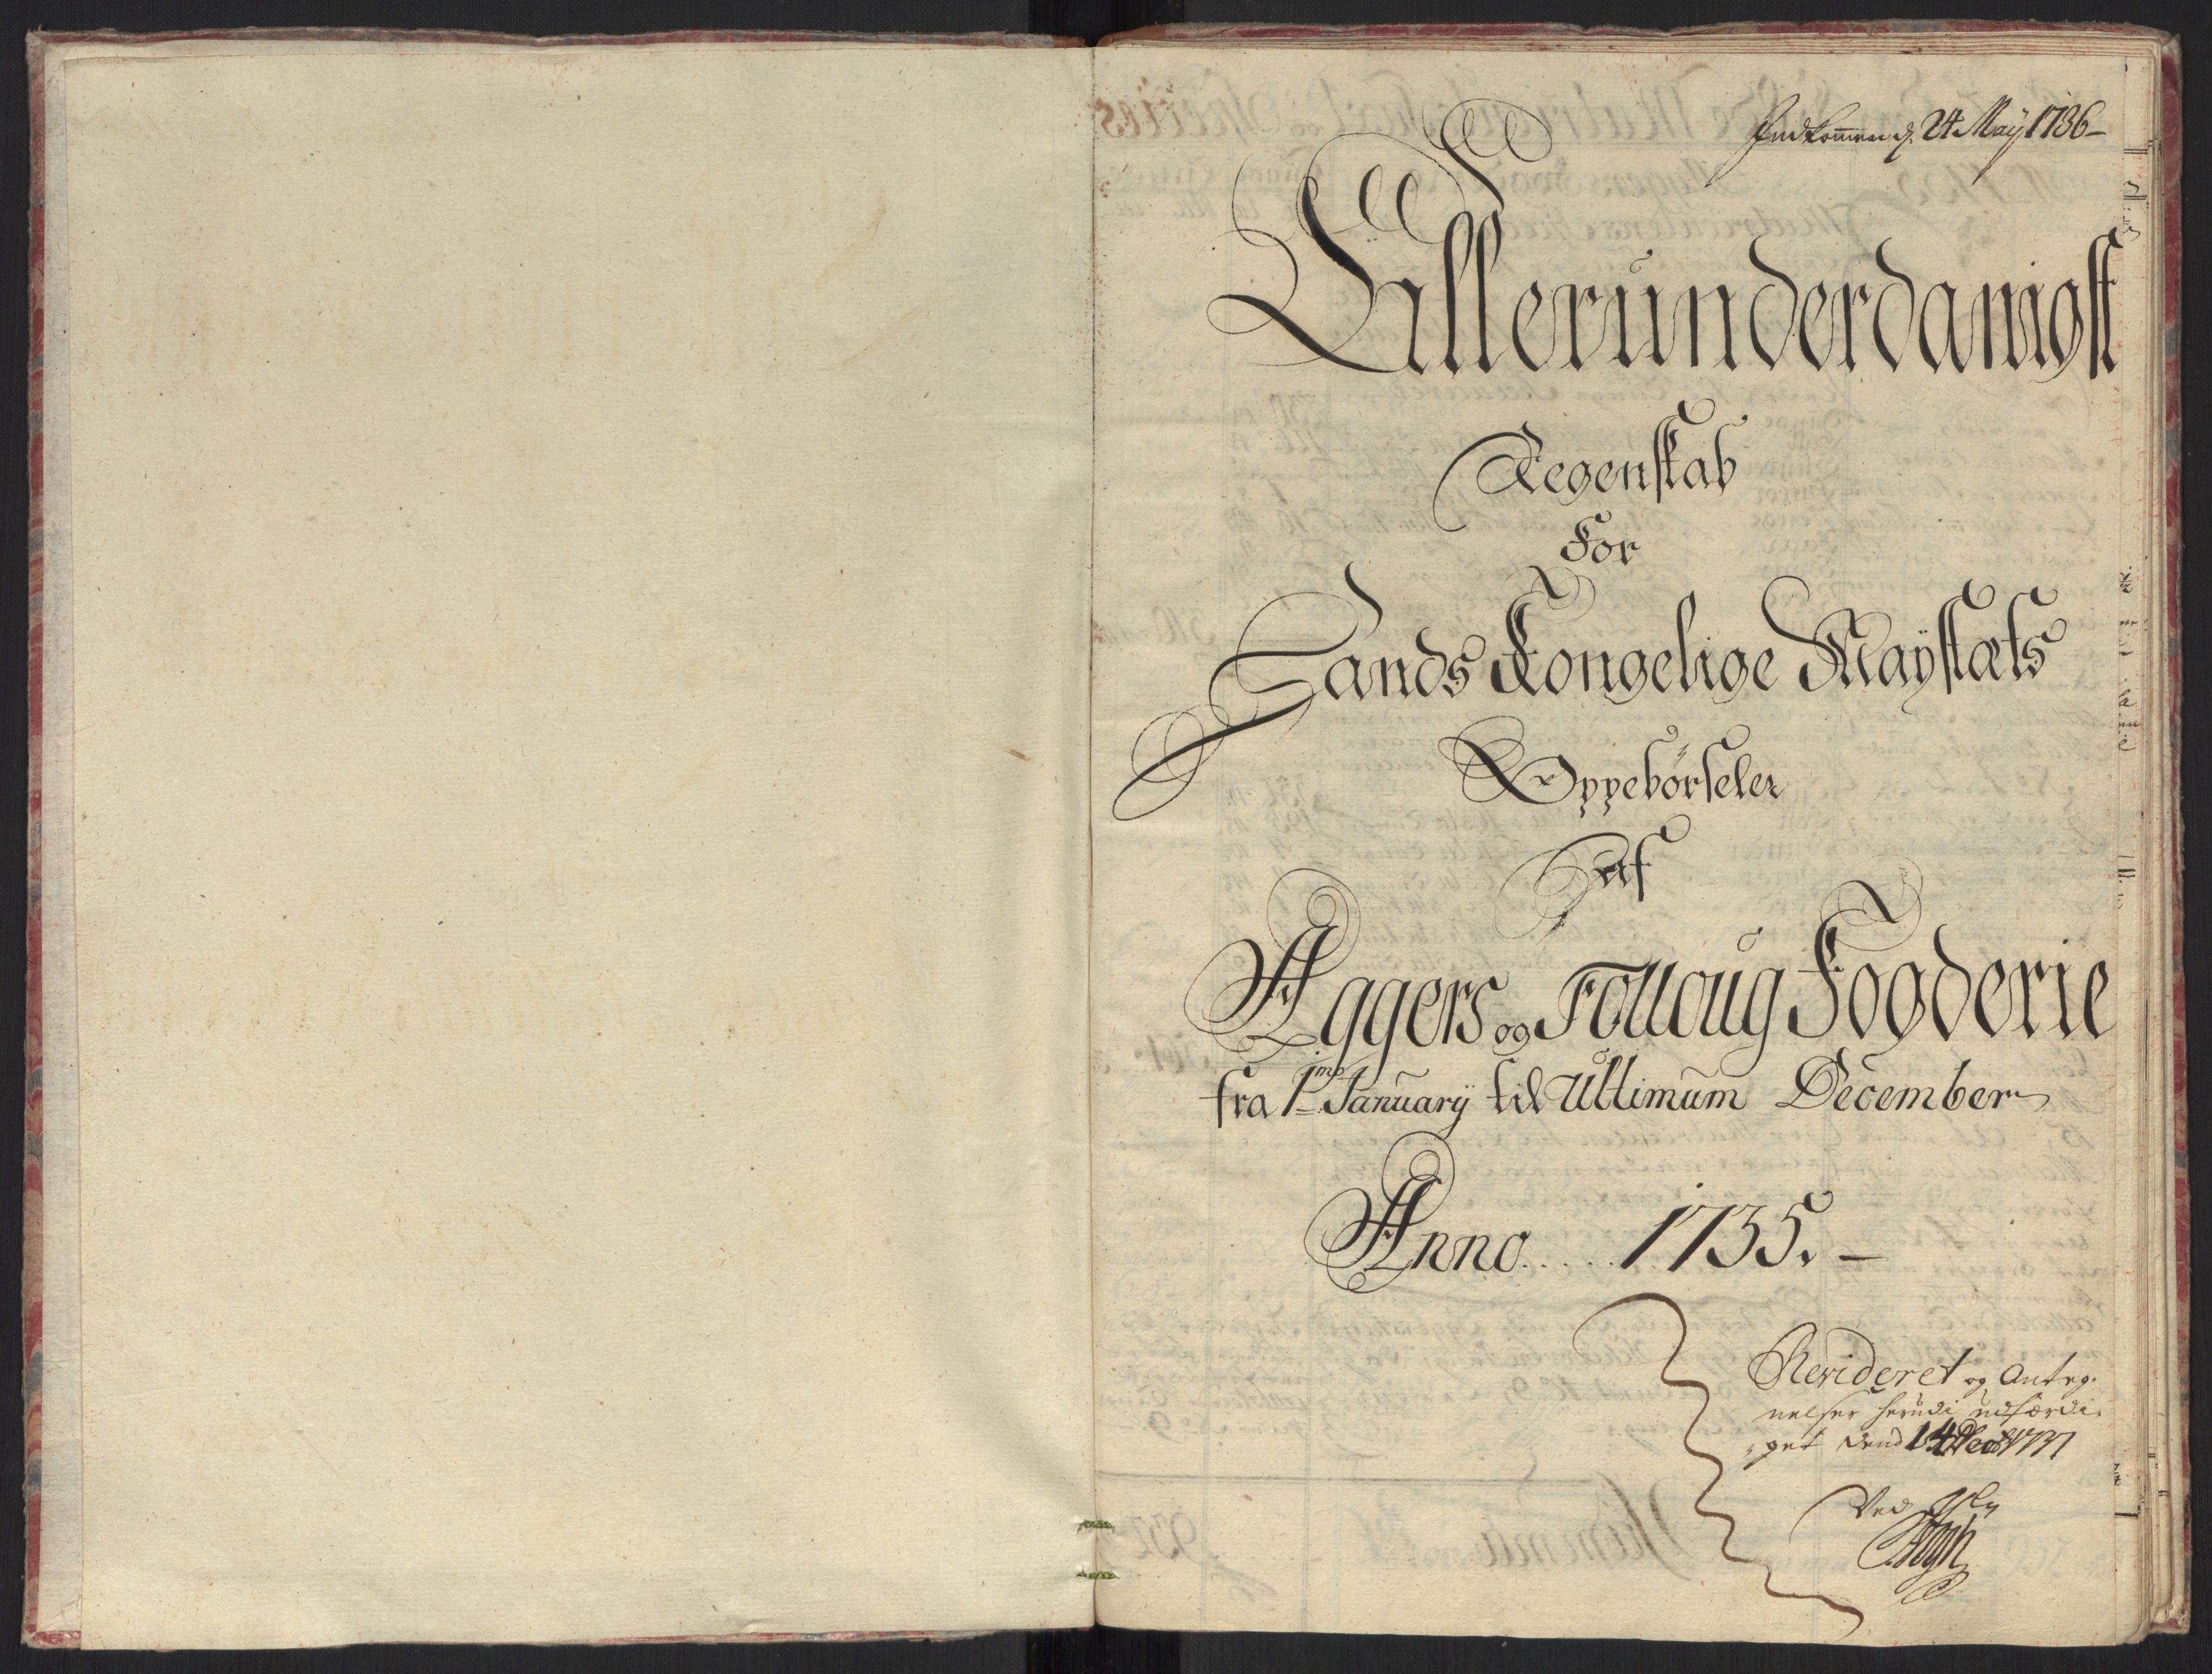 Indkommen d. 24 May 1736
Allerunderdanigst
Regenskab
For
Hands Kongelige Mayestæts
Oppebörseler
Af
Aggers og Folloug Fogderie
fra 1mo January til Ultimum December
Anno . . . . . 1735. –
Revideret og Anteg-
nelser herudi udfærdi-
get dend 14
Ved